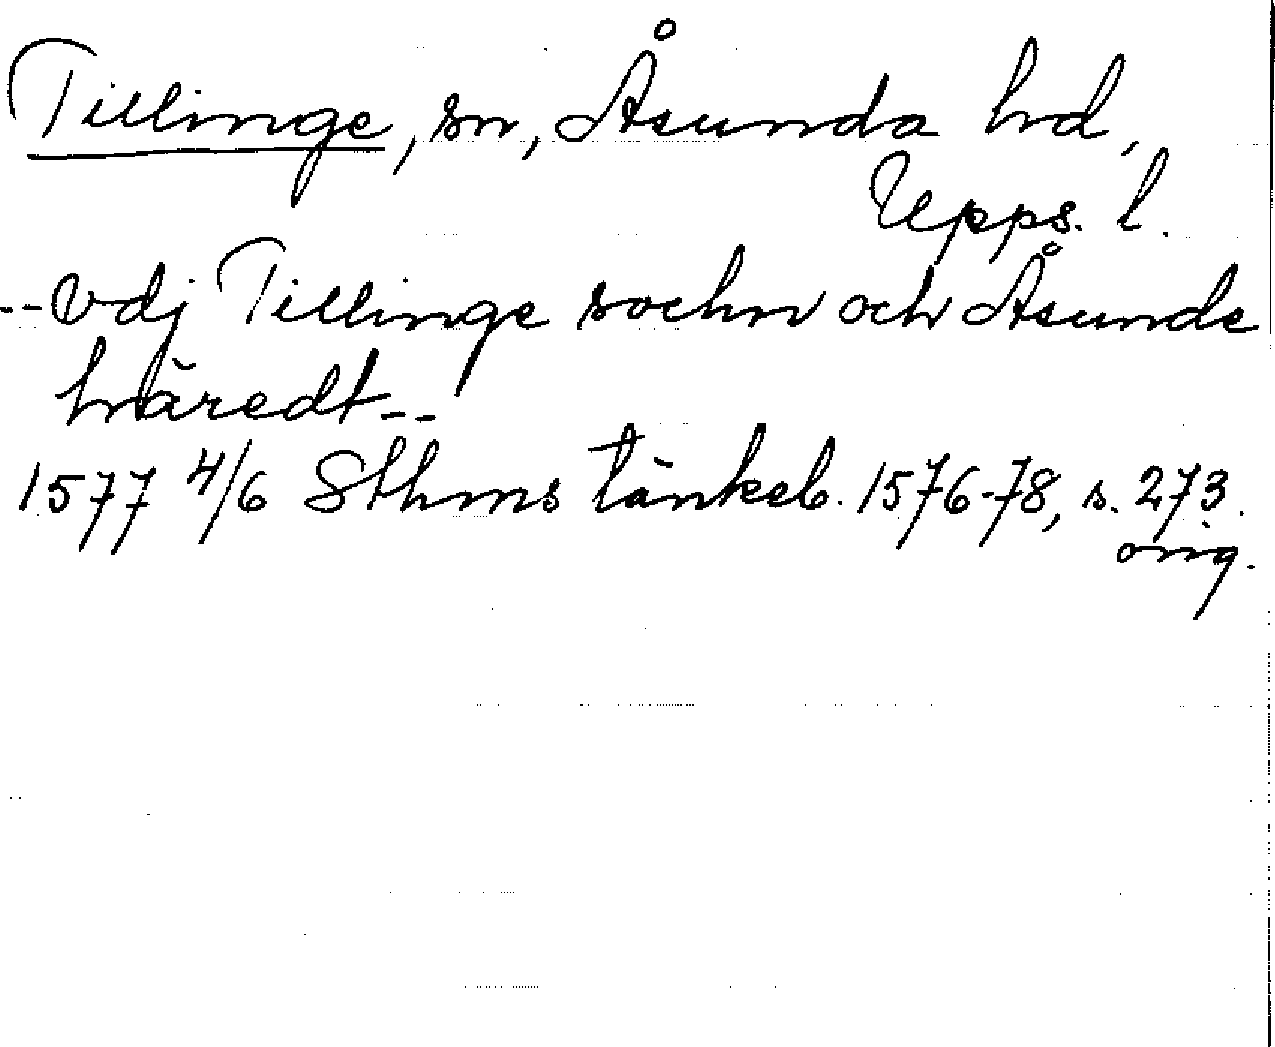 Tillinge, sn, Åsunda hd,
Upps. l.
--vdj Tillinge sochn och Åsunde
häredt--
1577 4/6 Sthms tänkeb. 1576-78, s. 273.
orig.